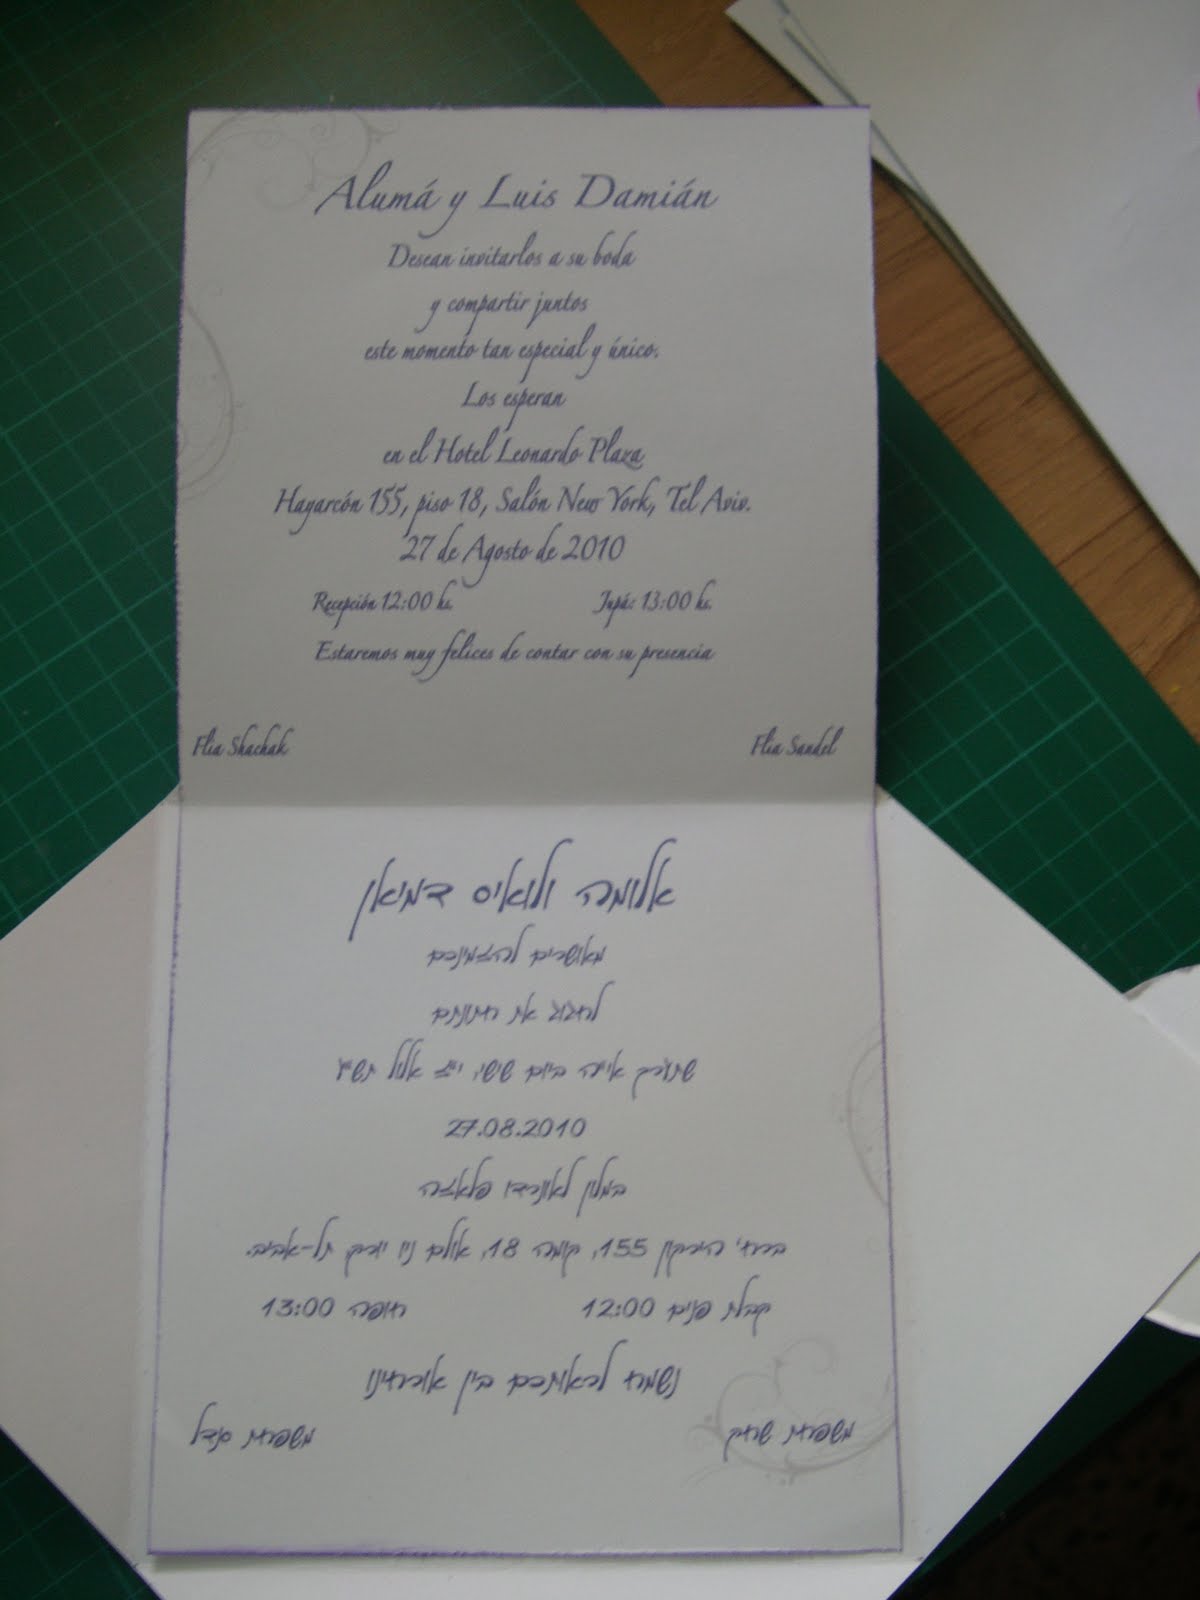 Alumá y Luis Damián
Desean invitarlos a su boda
y compartir juntos
este momento tan especial y único.
Los esperan
en el Hotel Leonardo Plaza
Hayarcón 155, piso 18, Salón New York, Tel Aviv.
27 de Agosto de 2010
Recepción 12:00 hs. Jupá: 13:00 hs.
Estaremos muy felices de contar con su presencia
Flia Shachak Flia Sandel
אלומה ולואיס דמיאן
מאושרים להזמינכם
לחגוג את חתונתם
שתערך אי"ה ביום שישי, י"ז אלול תש"ע
27.08.2010
במלון לאונרדו פלאזה
ברח' הירקון 155, קומה 18, אולם ניו יורק, תל-אביב.
קבלת פנים 12:00 חופה 13:00
נשמח לראותכם בין אורחינו
משפחת שחק משפחת סנדל